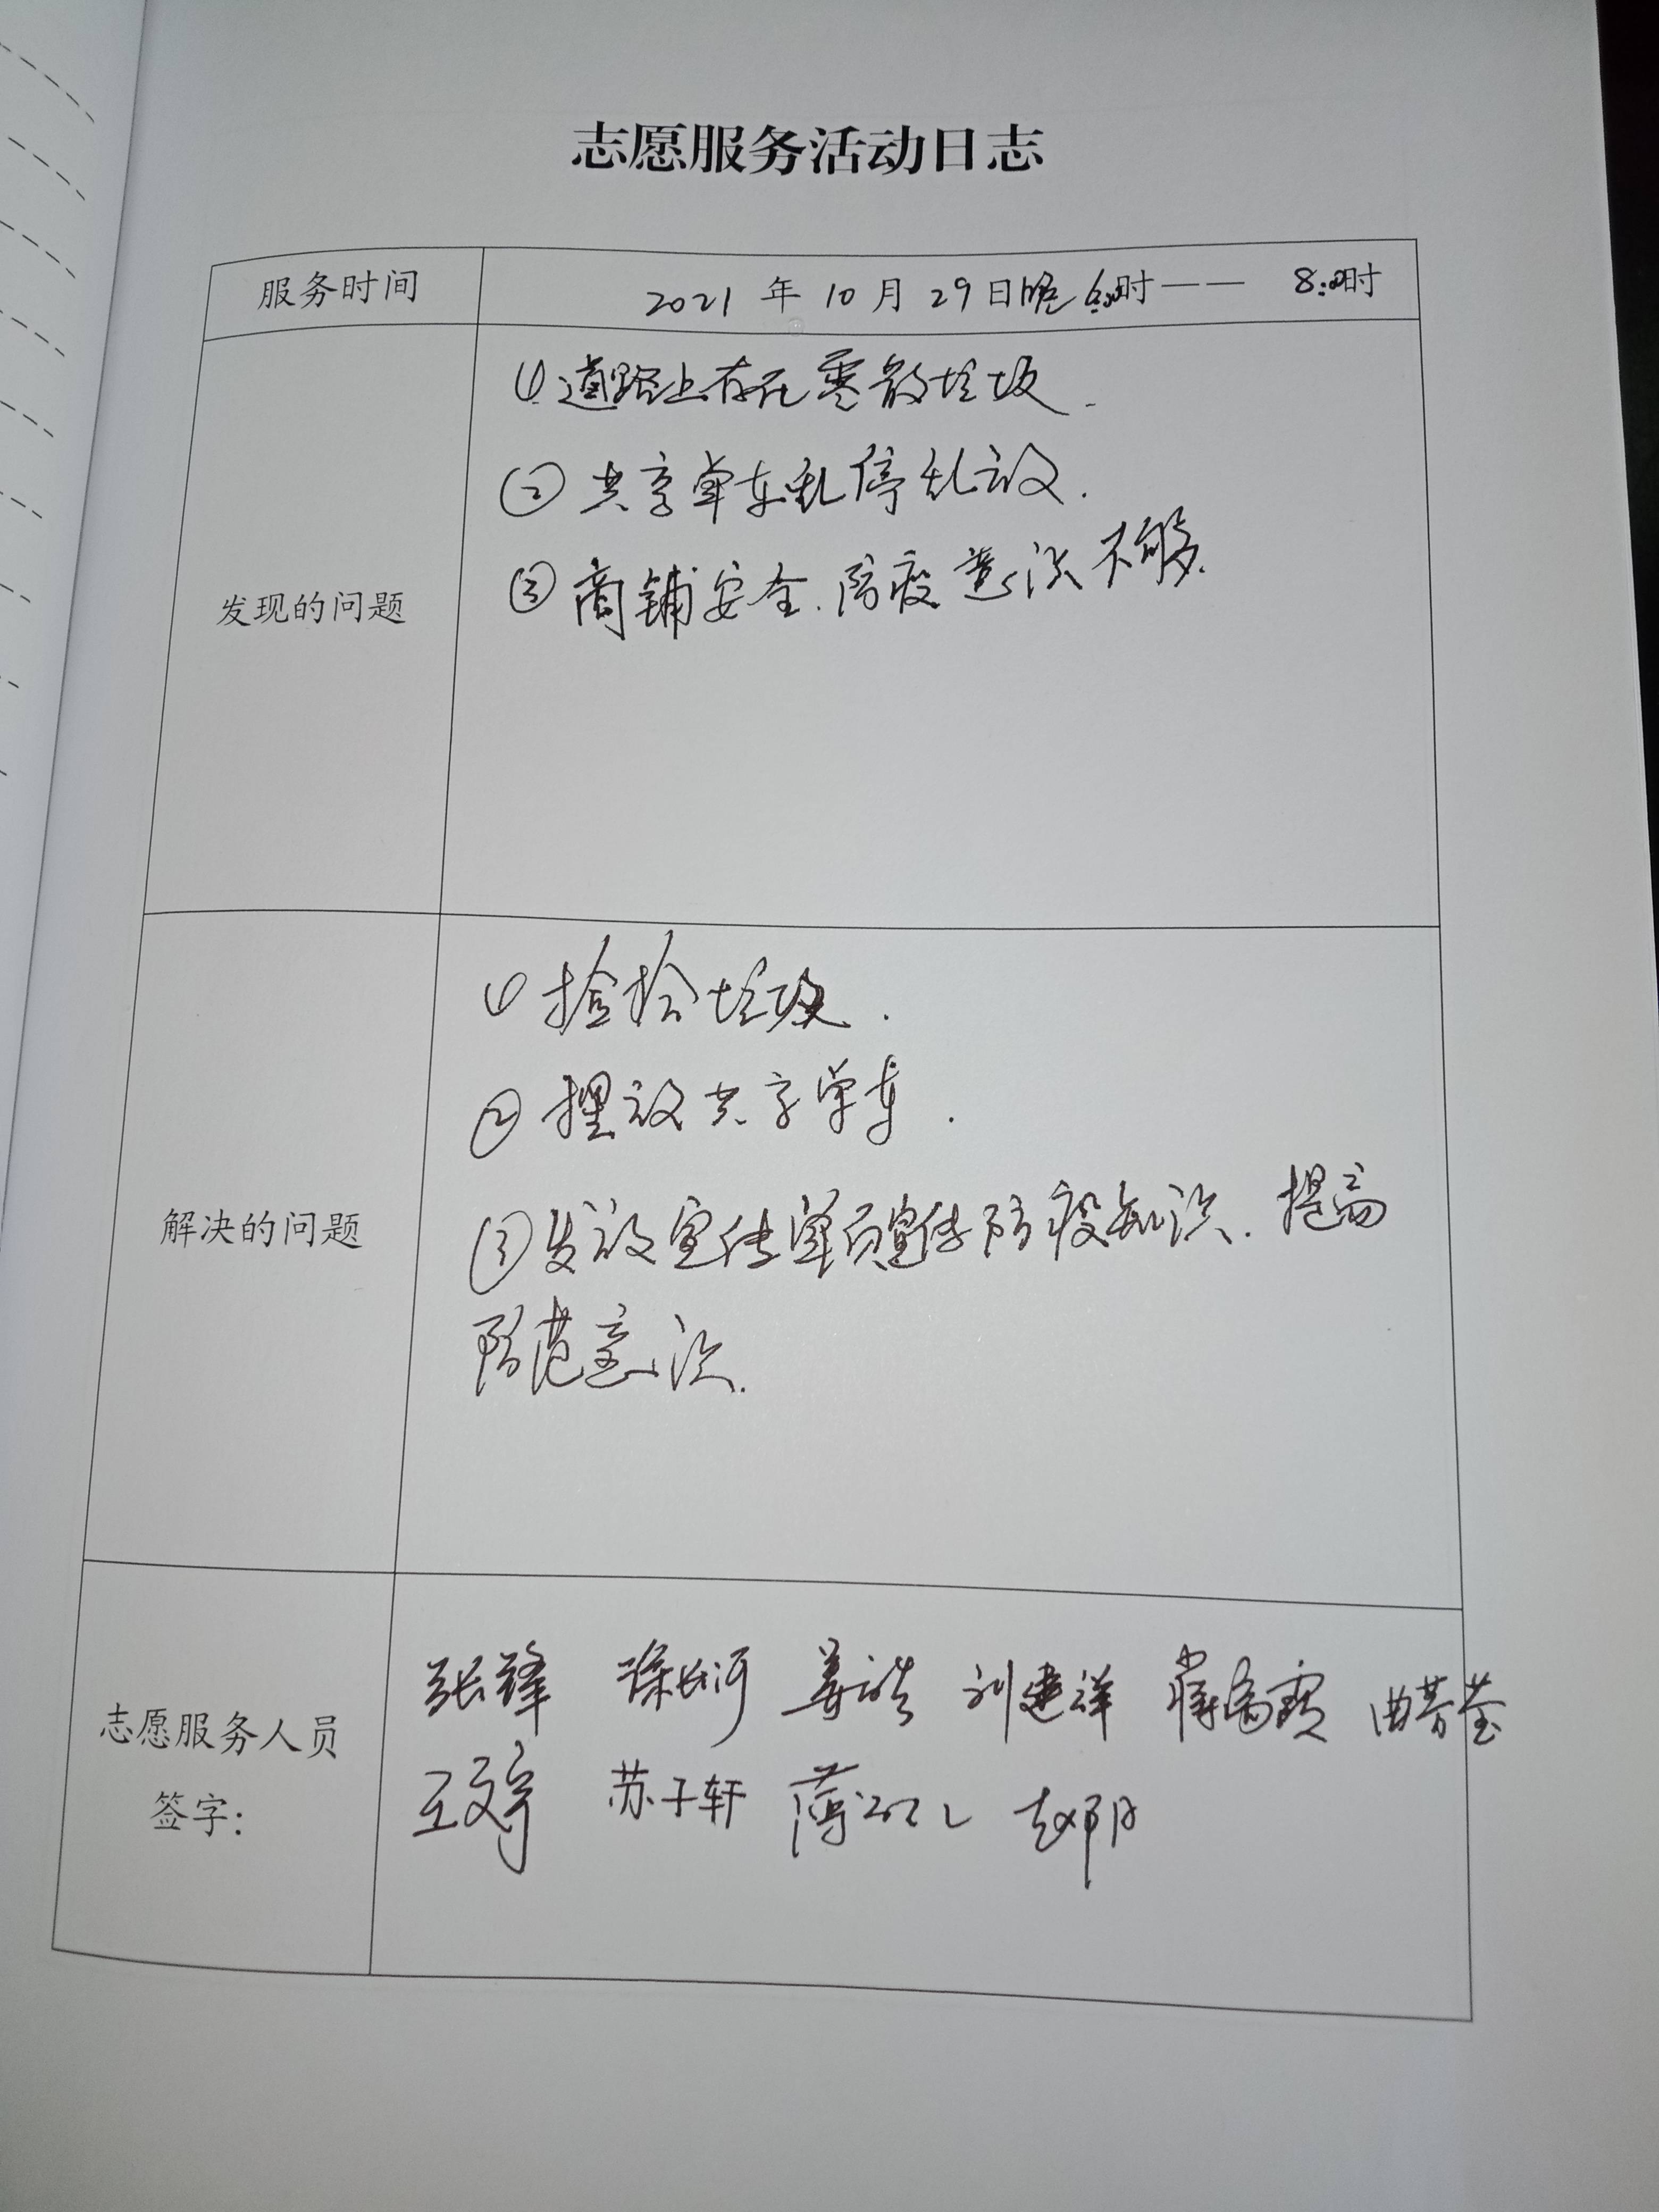 志愿服务活动日志
服务时间
2021 年 10 月 29 日晚 6:00时—— 8:00时
发现的问题
①道路上存在零散垃圾.
②共享单车乱停乱放.
③商铺安全.防疫意识不够.
解决的问题
①捡拾垃圾.
②摆放共享单车.
③发放宣传单页宣传防疫知识.提高
防范意识.
志愿服务人员
签字:
张锋 徐长河 姜浩 刘建祥 曲芳莹
王文宇 苏子轩 赵阳